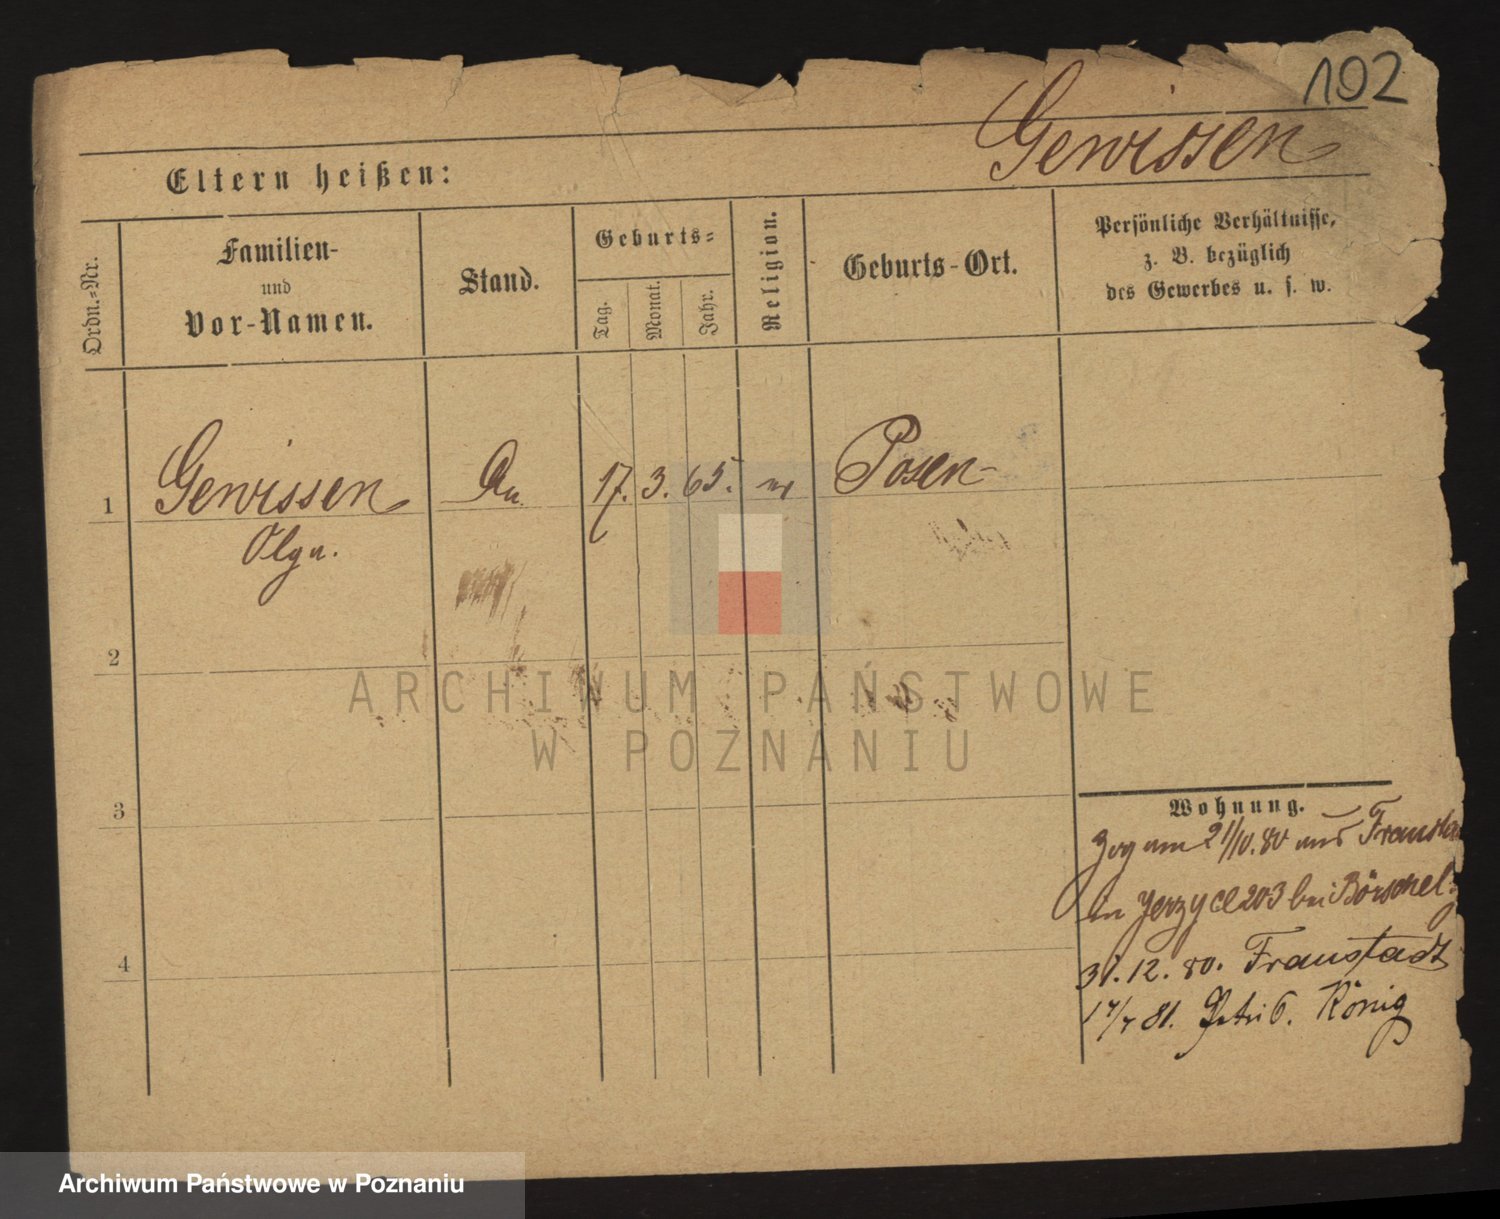 102
Gewissen
Eltern heißen:
Ordn.-Nr.
Familien-
und
Vor-Namen.
Stand.
Geburts-
Tag.
Monat.
Jahr.
Religion.
Geburts-Ort.
Persönliche Verhältnisse,
z. B. bezüglich
des Gewerbes u. s. w.
1 Gewissen 17. 3. 65. Posen
Olga.
2
3
4
Wohnung.
Zog am 21/10. 80 aus Fraustadt
in Jerzyce 203 bei Börschel.
31. 12. 80. Fraustadt
17/7 81. Petri 6. König
ARCHIWUM PAŃSTWOWE
W POZNANIU
Archiwum Państwowe w Poznaniu